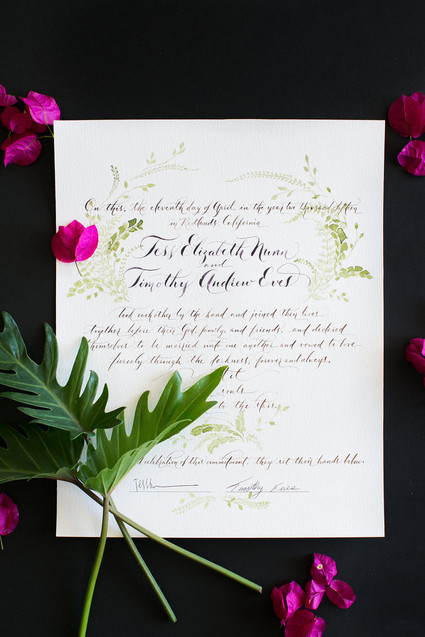 On this, the eleventh day of April in the year two thousand fifteen
in Redlands, California
Tess Elizabeth Nunn
and
Timothy Andrew Eves
took each other by the hand and joined their lives
together before their God, family, and friends, and declared
themselves to be married unto one another and vowed to love
fiercely through the darkness, forever and always.
to the stars
celebration of this commitment, they set their hands below
Timothy Eves